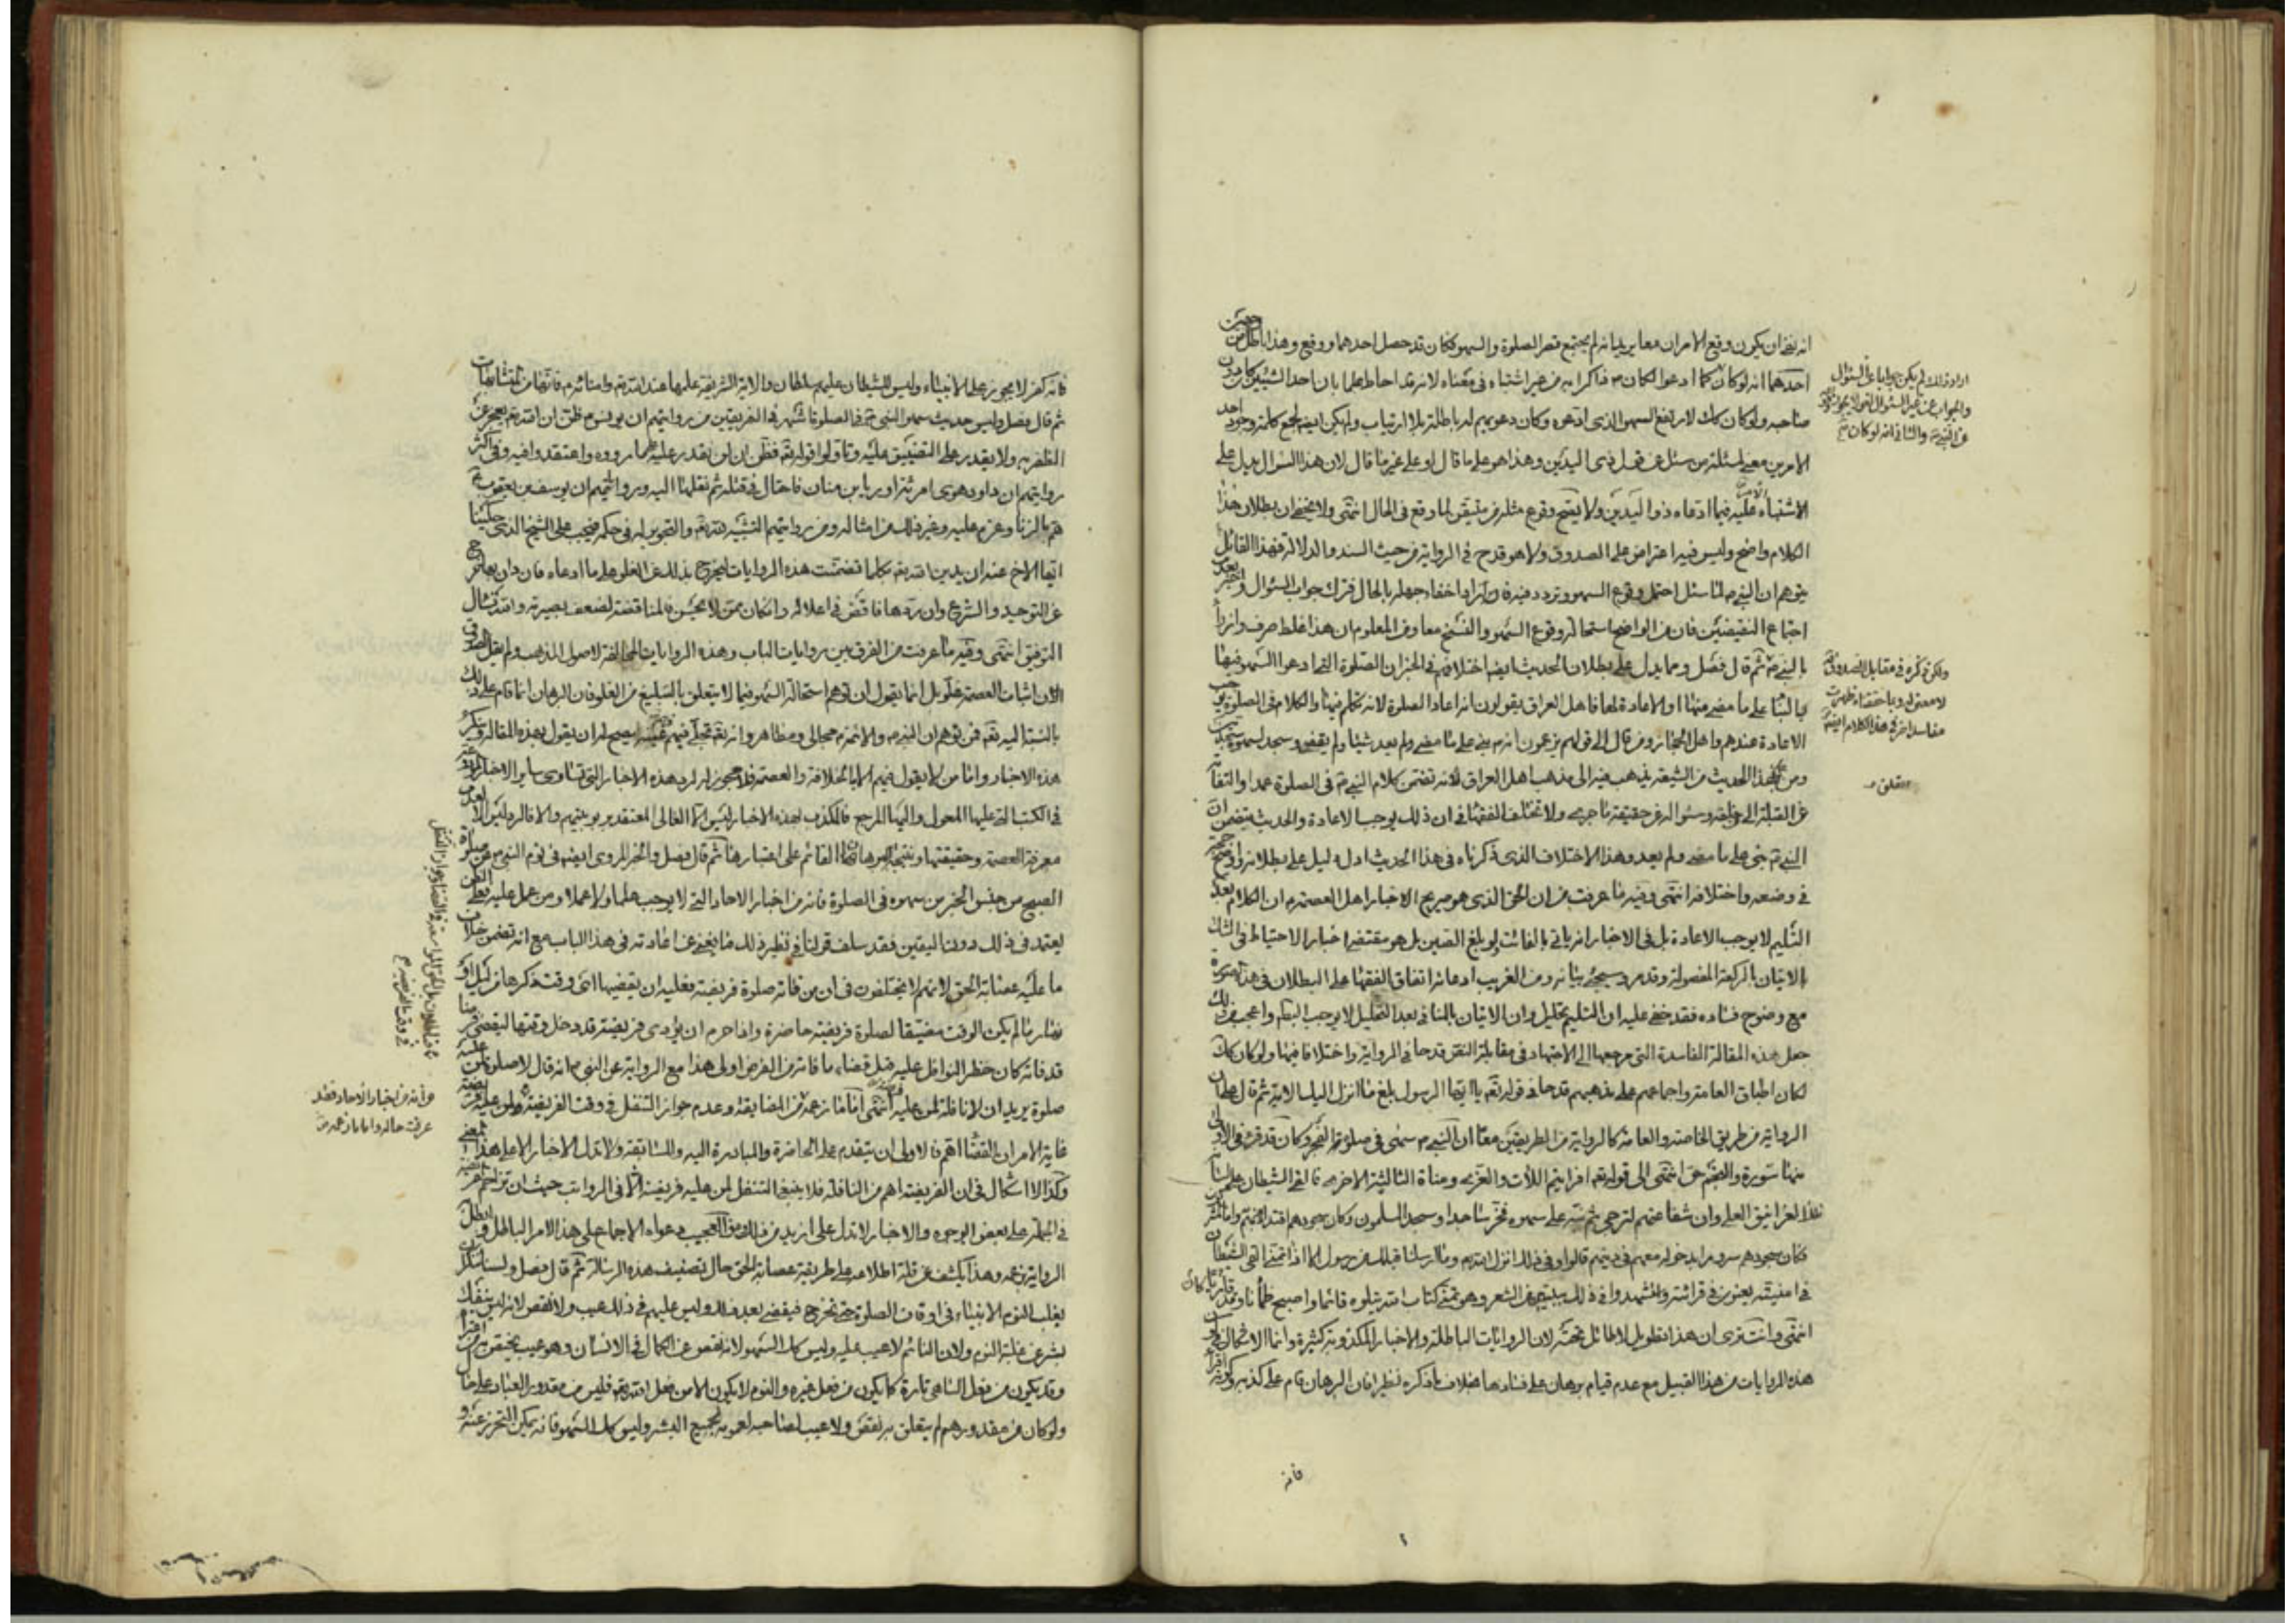 انه نفى ان يكون وقع الامران معا يريد انه لم يجتمع قصر الصلوة والسهو فكان قد حصل احدهما ووقع وهذا باطل من وجهين
احدهما انه لو كان كما ادعوا لكان ذاكرا به من غير اشتباه في معناه لانه قد احاط علما بان احد الشيئين كان دون
صاحبه ولو كان كك لارتفع السهو الذي ادعوه وكان دعويهم له باطلة بلا ارتياب ولم يكن ايضا لجمع كلمته وجود احد
الامرين معنى لمسئلته من سئل عن قول ذي اليدين وهذا هو على ما قال او على غير ما قال لان هذا السؤال يدل على
الاشتباه عليه فيما ادعاه ذو اليدين ولا يصح وقوع مثله من متيقن لما وقع في الحال انتهى ولا يخفى ان بطلان هذا
الكلام واضح وليس فيه اعتراض على الصدوق ولا هو قدح في الرواية من حيث السند والدلالة فهذا القائل
يتوهم ان النبي لما سئل احتمل وقوع السهو وتردد فيه فاراد اخفاء جهله بالحال فترك جواب السؤال واخبر بعدم
اجتماع النقيضين فان من الواضح استحالة وقوع السهو والنسخ معا ومن المعلوم ان هذا غلط صرف وازراء
بالنبي ثم قال فصل ومما يدل على بطلان الحديث ايضا اختلافهم في الجبران الصلوة التي ادعوا السهو فيها
بالبناء على ما مضى منها او الاعادة لها فاهل العراق يقولون انه اعاد الصلوة لانه تكلم فيها والكلام في الصلوة يوجب
الاعادة عندهم واهل الحجاز ومن قال الى قولهم يزعمون انه بنى على ما مضى ولم يعد شيئا ولم يقض وسجد لسهوه سجدتين
ومن هذا الحديث من الشيعة يذهب فيه الى مذهب اهل العراق لانه تضمن كلام النبي في الصلوة عمدا والتفاته
عن القبلة الى خلفه وسؤاله عن حقيقة ما جرى ولا تختلف الفقهاء في ان ذلك يوجب الاعادة والحديث يتضمن ان
النبي بنى على ما مضى ولم يعد وهذا الاختلاف الذي ذكرناه في هذا الحديث ادل دليل على بطلانه واوضح حجة
في وضعه واختلافه انتهى وفيه ما عرفت من ان الحق الذي هو صريح الاخبار اهل العصمة ان الكلام بعد
التسليم لا يوجب الاعادة بل في الاخبار انه ياتي بالفائت ولو بلغ الصين بل هو مقتضى اخبار الاحتياط في الشك
بالاتيان بالركعة المفصولة وقد مر وسيجئ بيانه ومن الغريب ادعائه اتفاق الفقهاء على البطلان في هذه الصورة
مع وضوح فساده فقد خفى عليه ان التسليم تحليل وان الاتيان بالمنافي بعد التحليل لا يوجب البطلان واعجب من ذلك
جعل هذه المقالة الفاسدة التي مرجعها الى الاجتهاد في مقابلة النص قدحا في الرواية واختلافا فيها ولو كان كك
لكان اطباق العامة واجماعهم على مذهبهم قدحا في قوله تعالى يا ايها الرسول بلغ ما انزل اليك الاية ثم قال على ان
الرواية من طريق الخاصة والعامة كالرواية من الطريقين معا ان النبي سهى في صلوة الفجر وكان قد قرء في الاولى
منها سورة والنجم حتى انتهى الى قوله تعالى افرايتم اللات والعزى ومناة الثالثة الاخرى فالقى الشيطان على لسانه
تلك الغرانيق العلى وان شفاعتهم لترجى ثم نبه على سهوه فخر ساجدا وسجد المسلمون وكان سجودهم اقتداء به واما المشركون
فكان سجودهم سرورا بدخوله معهم في دينهم قالوا وفي ذلك انزل الله وما ارسلنا قبلك من رسول الا اذا تمنى القى الشيطان
في امنيته يعنون في قرائته واستشهدوا في ذلك ببيت من الشعر وهو تمنى كتاب الله يتلوه قائما واصبح ظمأنا
انتهى وانت ترى ان هذا تطويل لا طائل تحته لان الروايات الباطلة والاخبار المكذوبة كثيرة وانما الاشكال في كون
هذه الروايات من هذا القبيل مع عدم قيام برهان على فسادها بخلاف ما ذكره نظيرا فان البرهان قام على كذبه
فانه
اراد ذلك لم يكن جوابا عن السؤال
والجواب عن غير السؤال لغو لا يجوز وقوعه
عن النبي والثاني انه لو كان
ولكن ذكره في مقابل الصدوق
مفاسد اخر في هذا الكلام ايضا
فانه كفر لا يجوز على الانبياء وليس للشيطان عليهم سلطان والاية الشريفة
ثم قال فصل وليس حديث سهو النبي في الصلوة اشهر في الفريقين من روايتهم ان يونس ظن ان الله تعالى يعجز عن
الظفر به ولا يقدر على التضييق عليه وتاولوا قوله تعالى فظن ان لن نقدر عليه على ما رووه واعتقدوا فيه وفي اكثر
روايتهم ان داود هوى امرئة اوريا بن حنان فاحتال في قتله ثم نقلها اليه وروايتهم ان يوسف بن يعقوب
هم بالزنا وعزم عليه وغير ذلك من امثاله ومن روايتهم التشبيه لله تعالى والتجوير له في حكمه فيجب على الشيخ الذي حكينا
ايها الاخ عنه ان يدين الله تعالى بكلما تضمنت هذه الروايات ليخرج بذلك عن الغلو على ما ادعاه فان دان بها خرج
عن التوحيد والشرع وان ردها ناقض في اعلاله وان كان ممن لا يحسن المناقضة لضعف بصيرته والله نسئل
التوفيق انتهى وفيه ما عرفت من الفرق بين روايات الباب وهذه الروايات المخالفة لاصول المذهب ولم يقل الصدوق
بالنسبة اليه تعالى فمن توهم ان النبي والائمة مجالي ومظاهر وانه تعالى تجلى فيهم بنفسه يصح له ان يقول بهذه المقالة وينكر
هذه الاخبار واما من لا يقول فيهم الا بالخلافة والعصمة فلا يجوز له رد هذه الاخبار التي تساوى ساير الاخبار المودعة
في الكتب التي عليها المعول واليها المرجع فالمكذب بهذه الاخبار ليس الا الغالي المعتقد بربوبيتهم
معرفة العصمة وحقيقتها القائم على اعتبارها ثم قال فصل والخبر المروي ايضا في نوم النبي عن صلوة
الصبح من جنس الخبر من سهوه في الصلوة فانه من اخبار الاحاد التي لا يوجب علما ولا عملا ومن عمل عليه فعلى الظن
يعتمد في ذلك دون اليقين فقد سلف قولنا في نظير ذلك ما يغني عن اعادته في هذا الباب مع انه تضمن خلاف
ما عليه عصابة الحق لانهم لا يختلفون في ان من فاته صلوة فريضة فعليه ان يقضيها اي وقت ذكرها من ليل او
نهار ما لم يكن الوقت مضيقا لصلوة فريضة حاضرة واذا حرم ان يؤدى فريضة قد دخل وقتها ليقضى فرضا
قد فاته كان حظر النوافل عليه قبل قضاء ما فاته من الفرض اولى هذا مع الرواية عن النبي انه قال لا صلوة لمن عليه
صلوة يريد ان لا نافلة لمن عليه فريضة انتهى اما ما زعمه من المضايقة وعدم جواز التنفل في وقت الفريضة
غاية الامر ان القضاء اهم فالاولى ان يتقدم على الحاضرة والمبادرة اليه والمسابقة ولا تدل الاخبار الا على هذا المعنى
وكذا لا اشكال في ان الفريضة اهم من النافلة فلا ينبغي التنفل لمن عليه فريضة الا في الرواتب حيث ان
في الجملة على بعض الوجوه والاخبار لا تدل على ازيد من ذلك ومن العجيب دعواه الاجماع على هذا الامر الباطل وابطل
الرواية بزعمه وهذا يكشف عن قلة اطلاعه على طريقة عصابة الحق حال تصنيف هذه الرسالة ثم قال فصل ولسنا ننكر ان
يغلب النوم الانبياء في اوقات الصلوة حتى تخرج فيقضى بعد ذلك وليس عليهم في ذلك عيب ولا نقص لانه ليس ينفك
بشر عن غلبة النوم ولان النائم لا عيب عليه وليس كك السهو لانه نقص عن الكمال في الانسان وهو عيب يختص به من اعتراه
وقد يكون من فعل الساهي تارة كما يكون من فعل غيره والنوم لا يكون الا من فعل الله تعالى فليس من مقدور العباد على حال
ولو كان من مقدورهم لم يتعلق به نقص ولا عيب لصاحبه لعمومه لجميع البشر وليس كك السهو فانه يمكن التحرز عنه و
في وقت الفريضة
من اخبار الاحاد فقد
عرفت حاله واما ما زعمه من